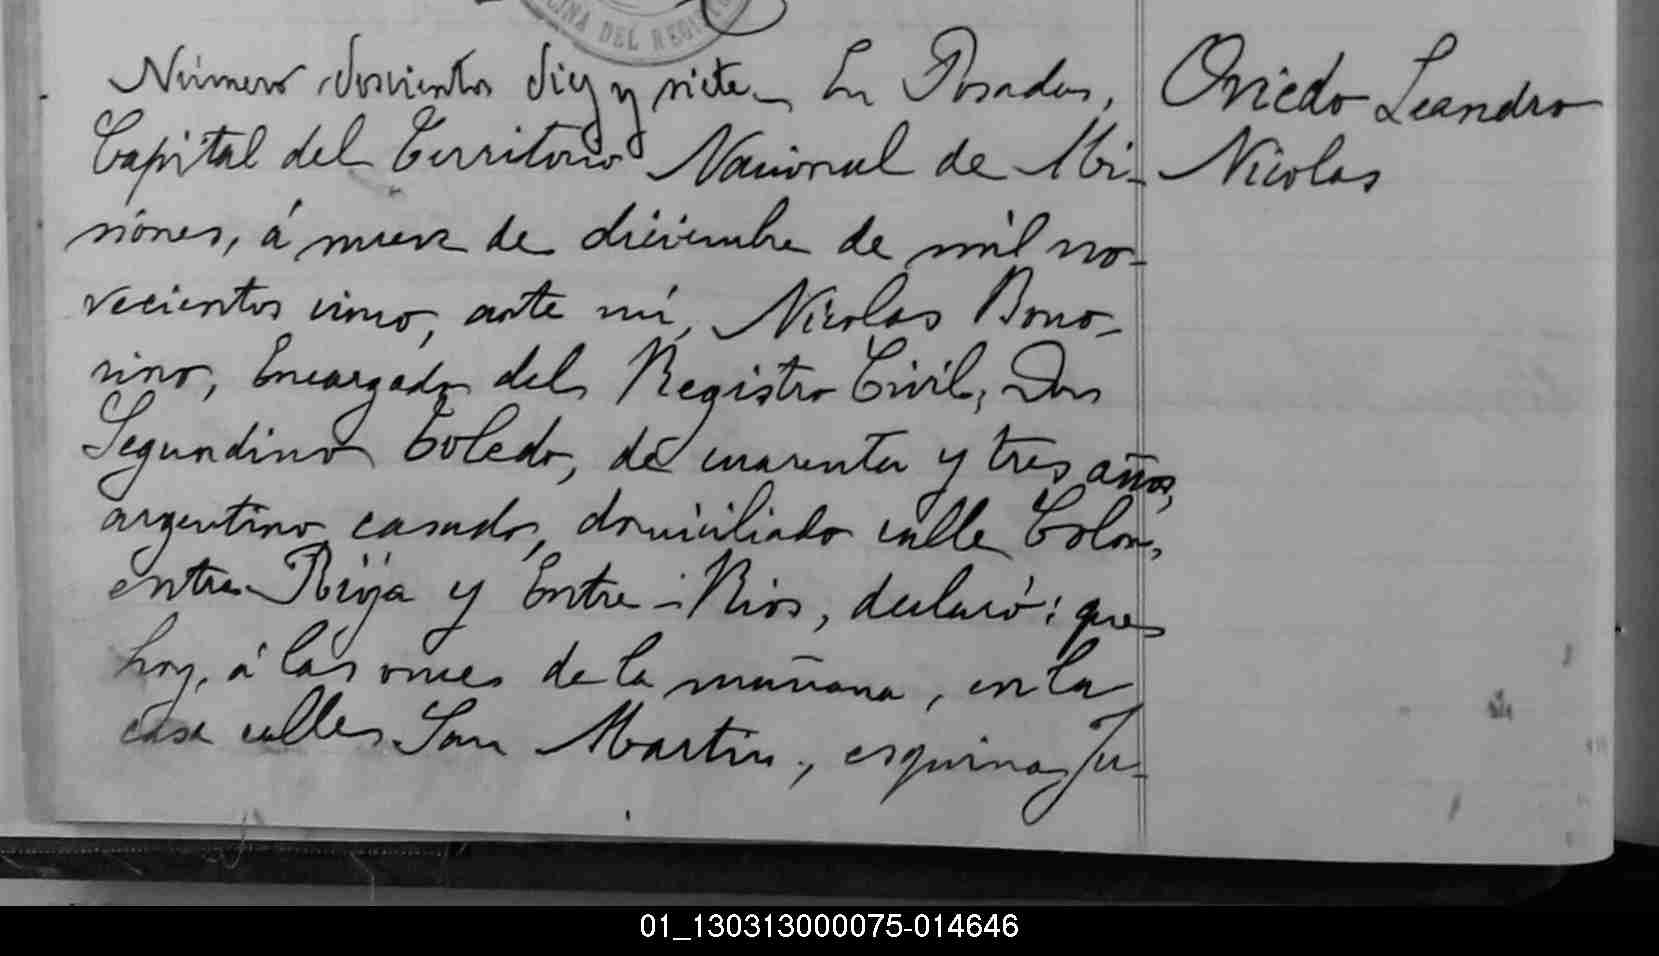 CINA DEL REGIS
Número doscientos diez y siete. En Posadas,
Capital del Territorio Nacional de Mi-
siones, á nueve de diciembre de mil no-
vecientos cinco, ante mí, Nicolas Bono-
rino, Encargado del Registro Civil, Don
Segundino Toledo, de cuarenta y tres años,
argentino, casado, domiciliado calle Colon,
entre Rioja y Entre-Rios, declaró: que
hoy, á las once de la mañana, en la
casa calle San Martin, esquina Ju-
Oviedo Leandro
Nicolas
01_130313000075-014646